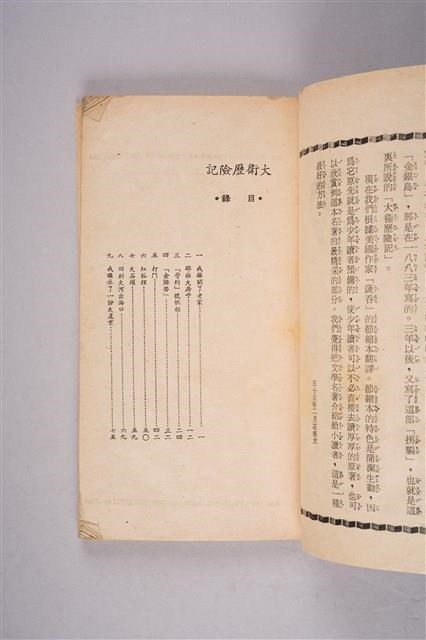 「金銀島」，那是在一八八三年寫的。三年以後，又寫了這部「拐騙」，也就是這
裏所說的「大衛歷險記」。
現在我們根據美國作家「薩吞」的節縮本翻譯。節縮本的特色是簡潔生動，因
爲它原先就是爲少年讀者預備的，使少年讀者可以不必直接去讀厚厚的原著，也可
以欣賞到這本名著的最精采的部分。我們覺得把文學名著介紹給小讀者，這是一種
最好的方法。
五十五年一月在臺北
大衛歷險記
•目錄•
一 我離開了老家……一
二 那大房子……一二
三 「誓約」號帆船……二四
四 「金腰帶」……三二
五 打鬥……四二
六 紅狐狸……五〇
七 大石頭……五九
八 回到大河出海口……六九
九 我繼承了一份大產業……七五